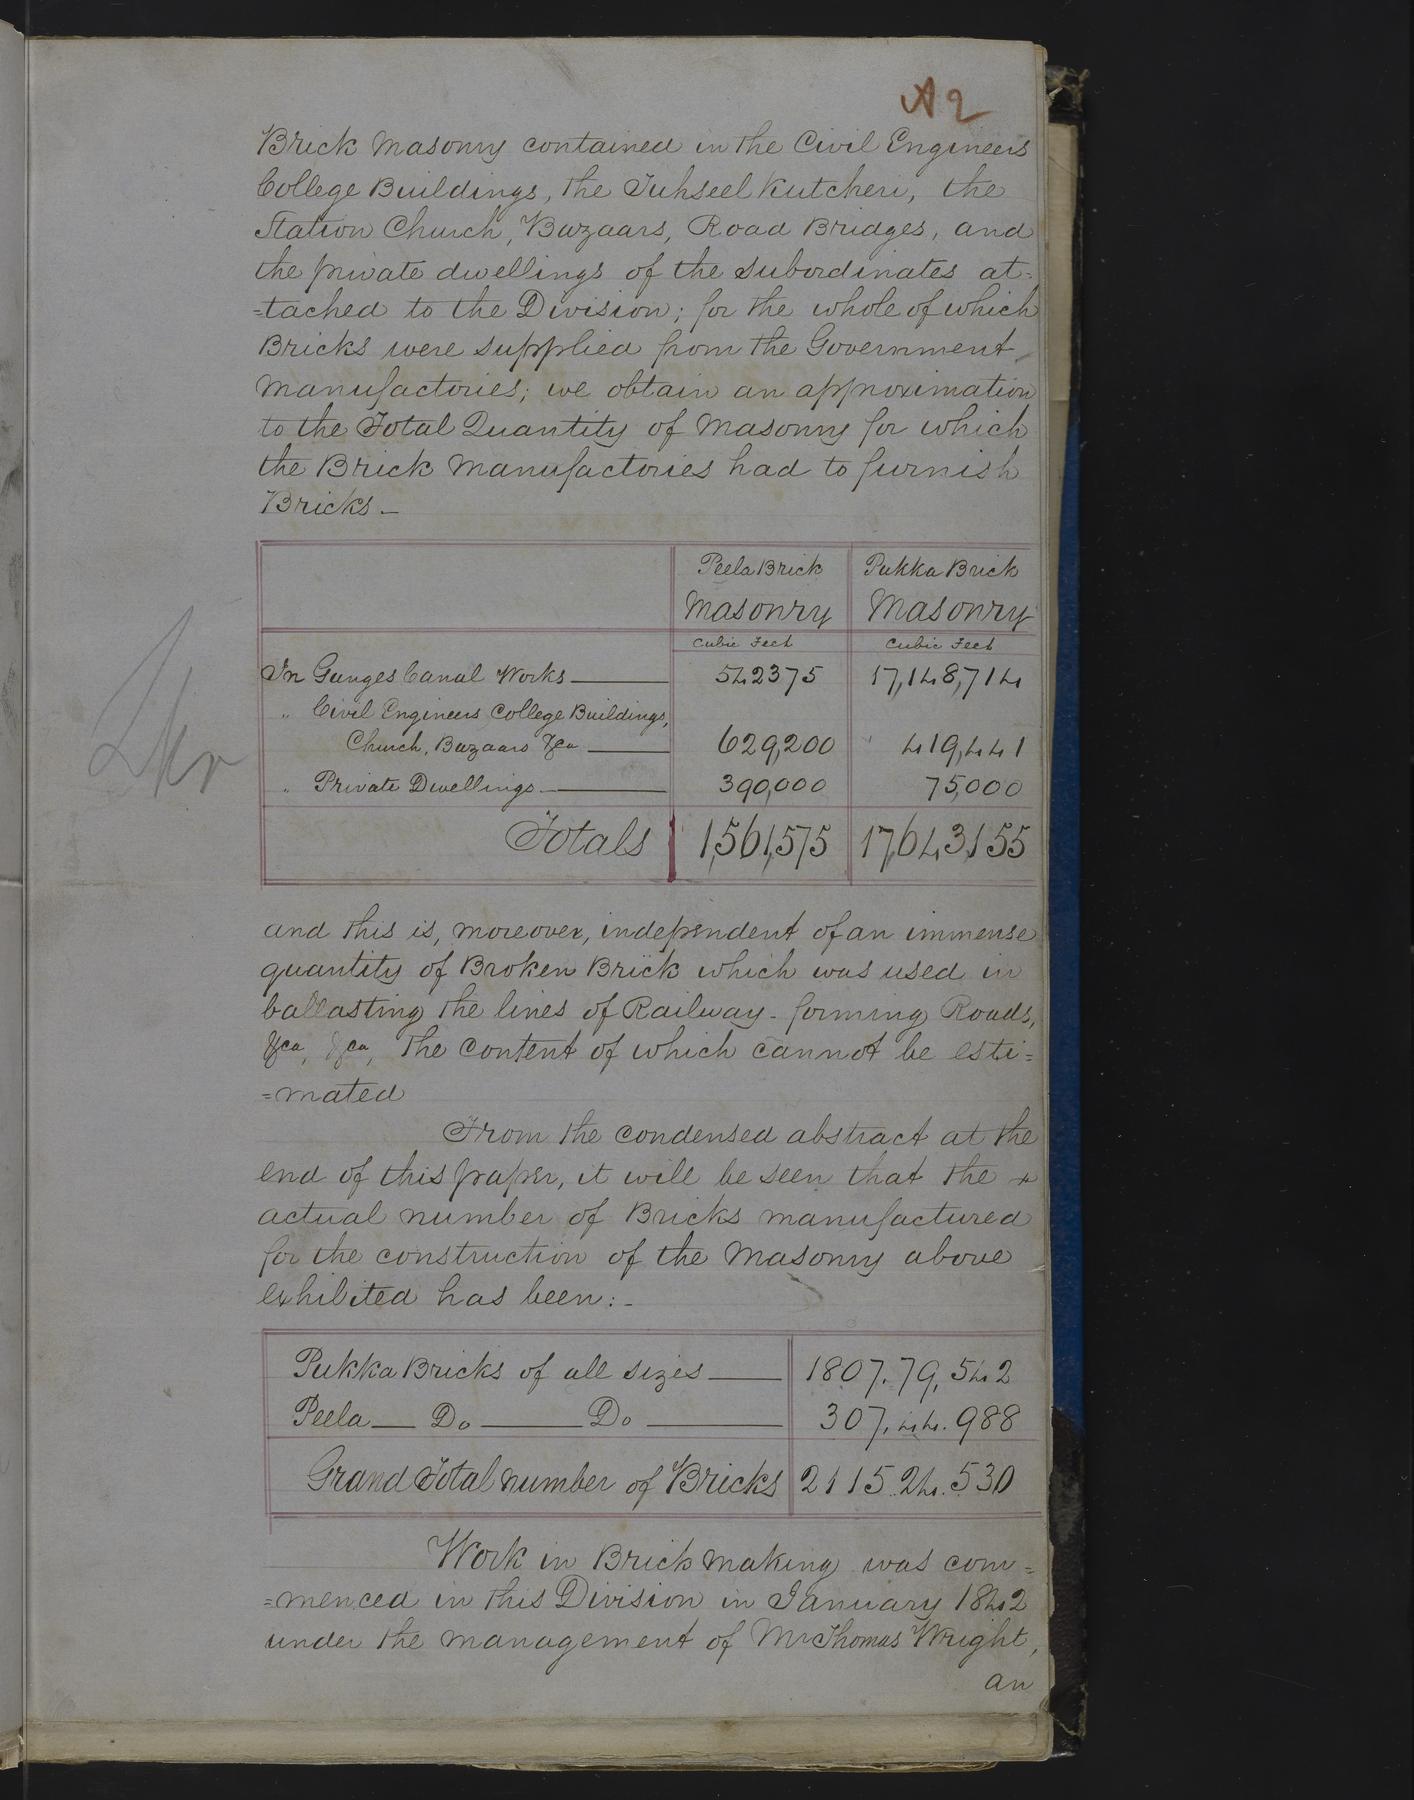 A2
Brick Masonry contained in the Civil Engineers
College Buildings, the Tuhseel Kutcheri, the
Station Church, Bazaars, Road Bridges, and
the private dwellings of the subordinates at=
=tached to the Division; for the whole of which
Bricks were supplied from the Government
Manufactories; we obtain an approximation
to the Total Quantity of Masonry for which
the Brick Manufactories had to furnish
Bricks.—
Peela Brick Pukka Brick
Masonry Masonry
Cubic Feet Cubic Feet
In Ganges Canal Works — 542375 17,148,714
„ Civil Engineers College Buildings,
Church, Bazaars &ca — 629,200 419,441
„ Private Dwellings — 390,000 75,000
Totals 1,561,575 17,643,155
and this is, moreover, independent of an immense
quantity of Broken Brick which was used in
ballasting the lines of Railway - forming Roads,
&ca, &ca, the content of which cannot be esti=
=mated
From the condensed abstract at the
end of this paper, it will be seen that the x
actual number of Bricks manufactured
for the construction of the Masonry above
exhibited has been:-
Pukka Bricks of all sizes — 1807,79,542
Peela — Do — Do — 307,44.988
Grand Total number of Bricks 2115.24.530
Work in Brick making was com=
=menced in this Division in January 1842
under the management of Mr Thomas Wright,
an